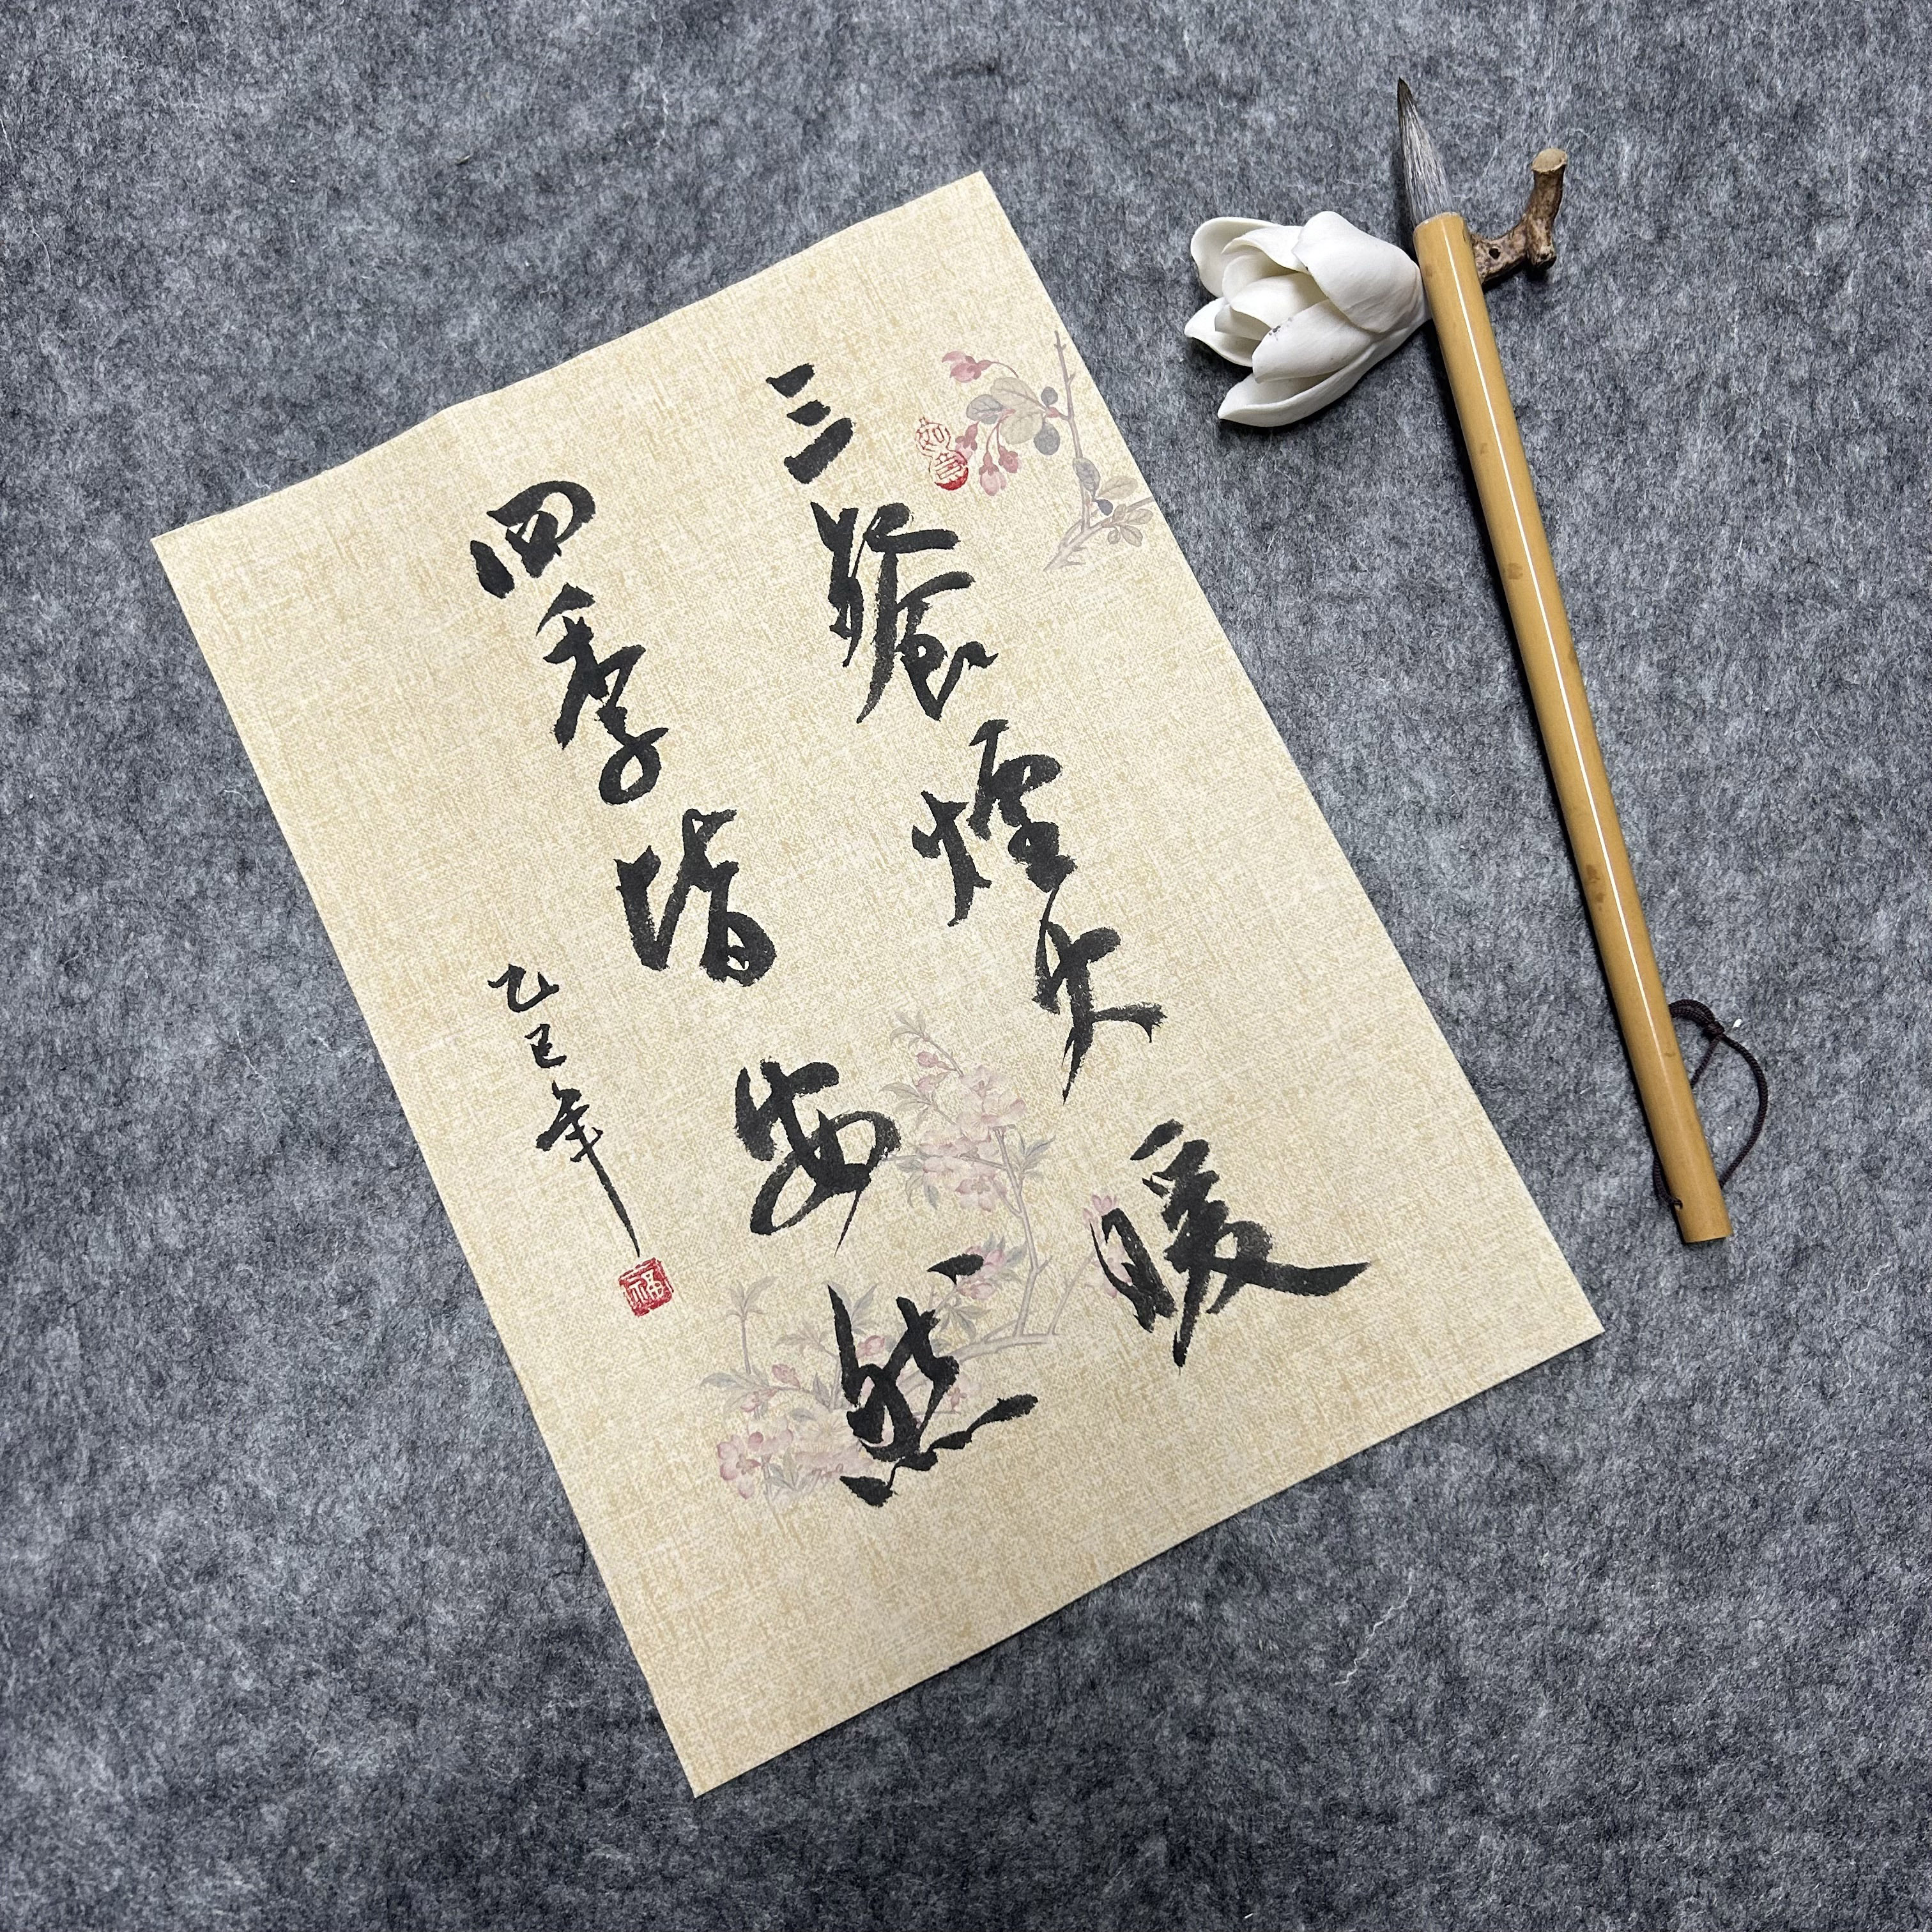 三餐煙火暖
四季皆安然
乙巳年
如意
福